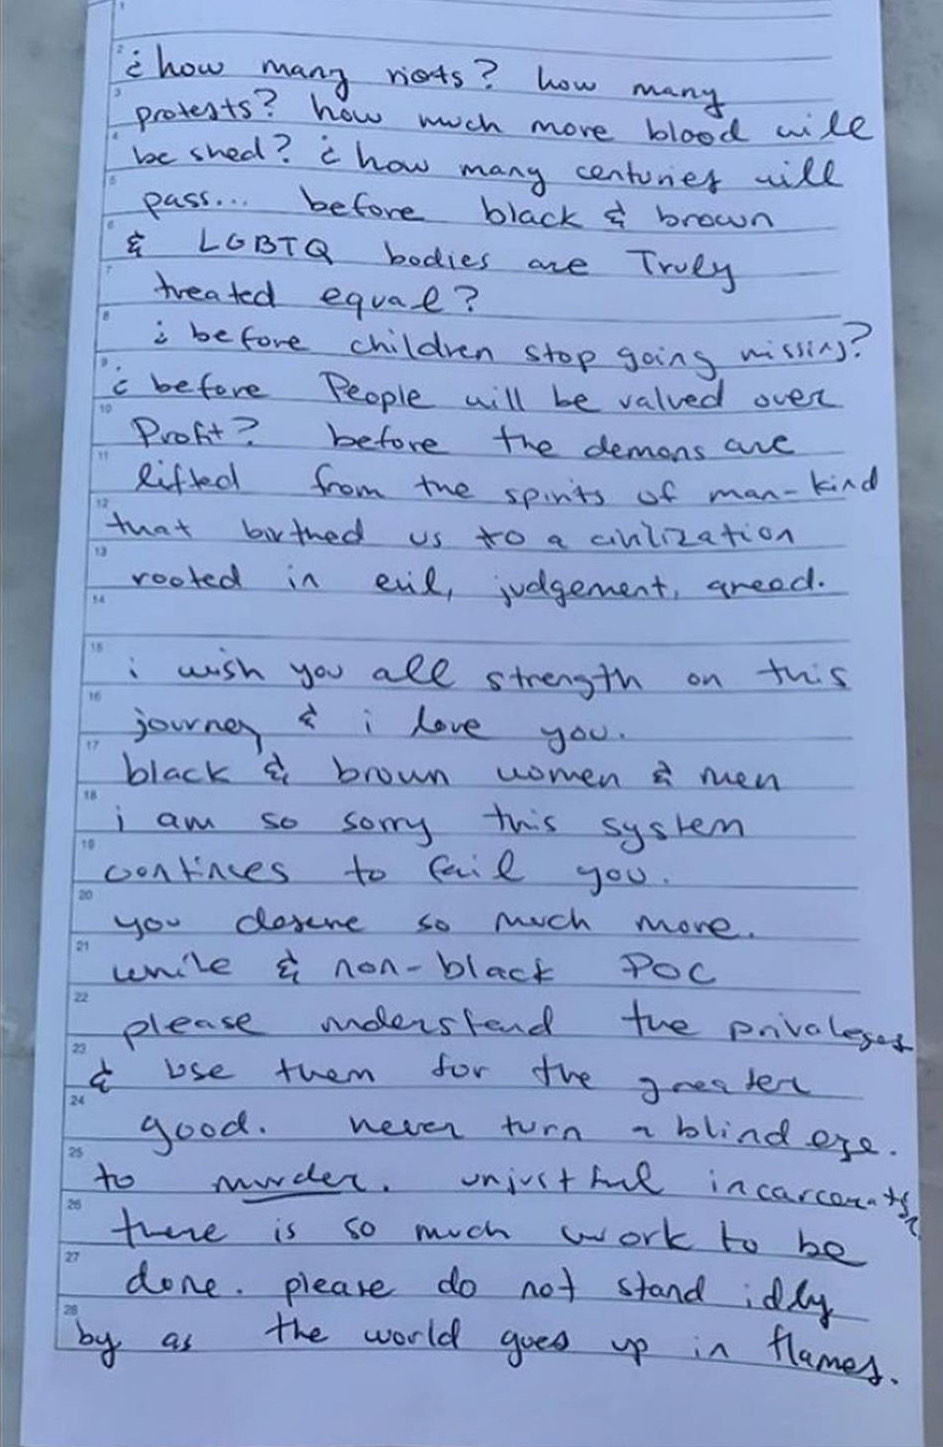 ¿how many riots? how many
protests? how much more blood will
be shed? ¿how many centuries will
pass... before black & brown
& LGBTQ bodies are Truly
treated equal?
¿before children stop going missing?
¿before People will be valued over
Profit? before the demons are
lifted from the spirits of man-kind
that birthed us to a civilization
rooted in evil, judgement, greed.
i wish you all strength on this
journey & i love you.
black & brown women & men
i am so sorry this system
continues to fail you.
you deserve so much more.
white & non-black POC
please understand the privaleges
& use them for the greater
good. never turn a blind eye.
to murder. unjustful incarcerats
there is so much work to be
done. please do not stand idly
by as the world goes up in flames.
1
2
3
4
5
6
7
8
9
10
11
12
13
14
15
16
17
18
19
20
21
22
23
24
25
26
27
28